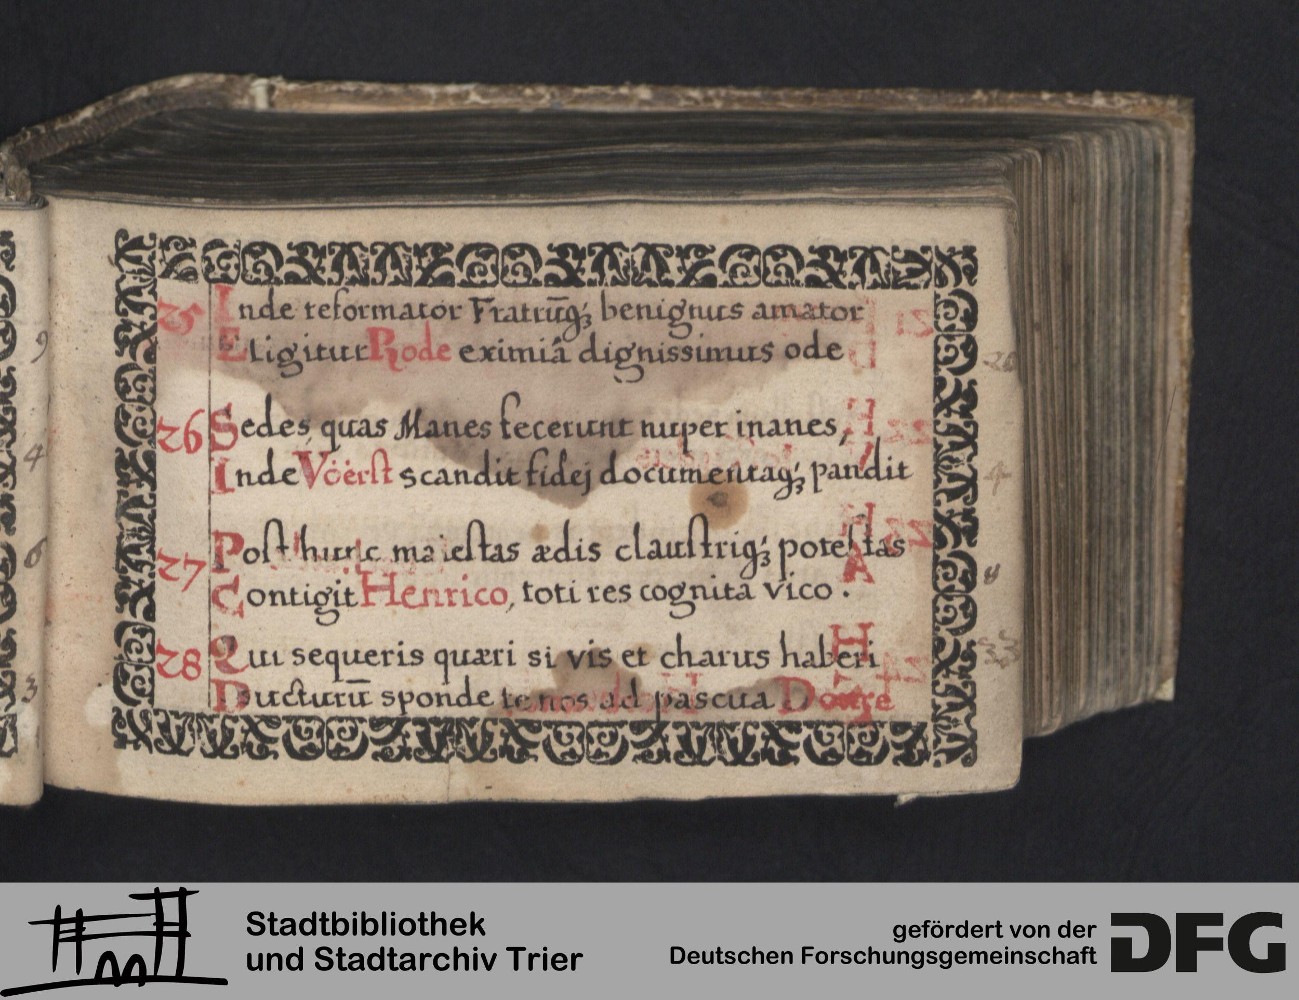 25 Inde reformator Fratrūq; benignus amator
Eligitur Rode eximiâ dignissimus ode
26 Sedes, quas Manes fecerunt nuper inanes,
Inde Vöerst scandit fidej documentaq; pandit
27 Post hunc maiestas ædis claustriq; potestas
Contigit Henrico, toti res cognita vico.
28 Qui sequeris quæri si vis et charus haberi
Ducturū sponde te nos ad pascua
9
4
6
3
Stadtbibliothek
und Stadtarchiv Trier
gefördert von der
Deutschen Forschungsgemeinschaft
DFG